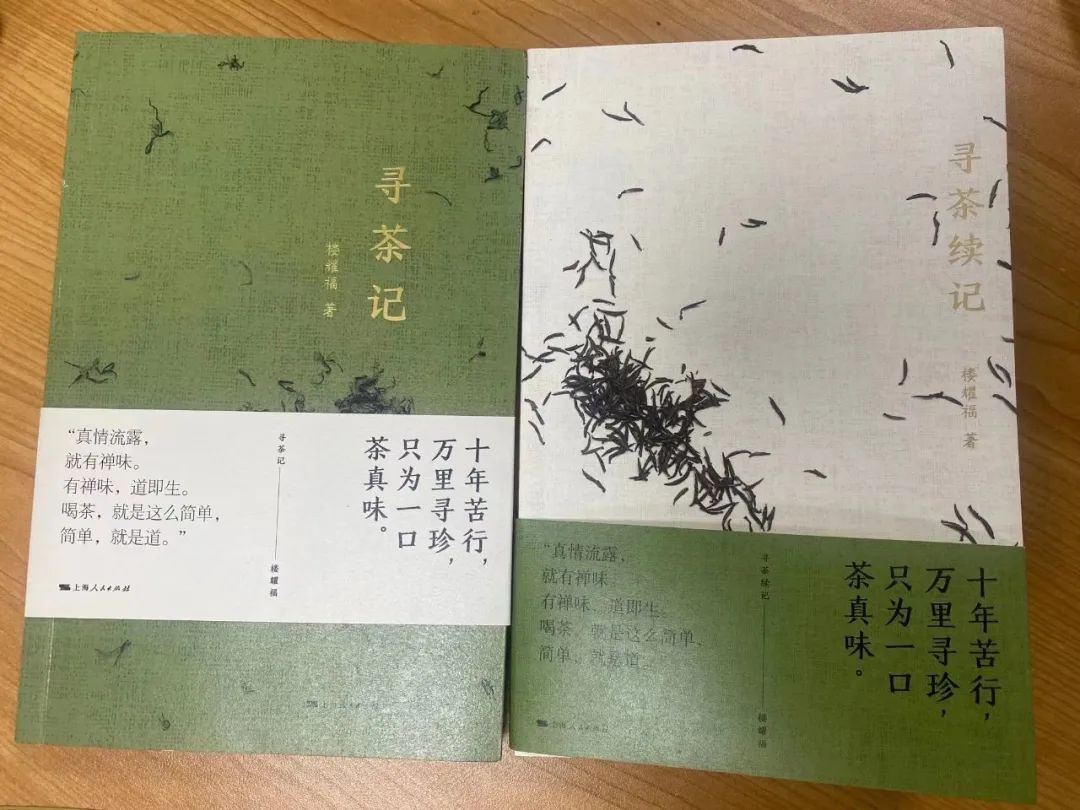 寻茶记
楼耀福 著
“真情流露，
就有禅味。
有禅味，道即生。
喝茶，就是这么简单，
简单，就是道。”
上海人民出版社
寻茶记
楼耀福
十年苦行，
万里寻珍，
只为一口
茶真味。
上海人民出版社
寻茶续记
楼耀福 著
“真情流露，
就有禅味
有禅味，道即生。
喝茶，就是这么简单，
简单，就是道
上海人民出版社
寻茶续记
楼耀福
十年苦行，
万里寻珍，
只为一口
茶真味。